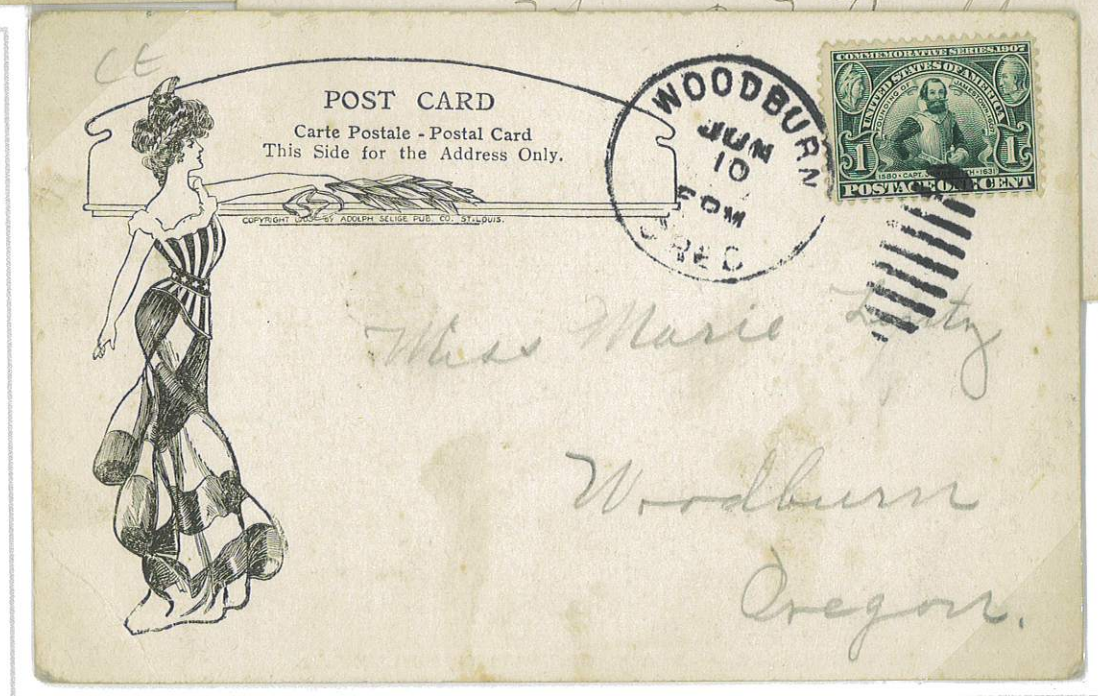 CE
POST CARD
Carte Postale - Postal Card
This Side for the Address Only.
COPYRIGHT BY ADOLPH SELIGE PUB. CO. ST. LOUIS.
WOODBURN
JUN
10
PM
OREG
COMMEMORATIVE SERIES, 1907
UNITED STATES OF AMERICA
FOUNDING OF JAMESTOWN 1607
1 1
1580 · CAPT. J SMITH · 1631
POSTAGE ONE CENT
Miss Marie
Woodburn
Oregon.